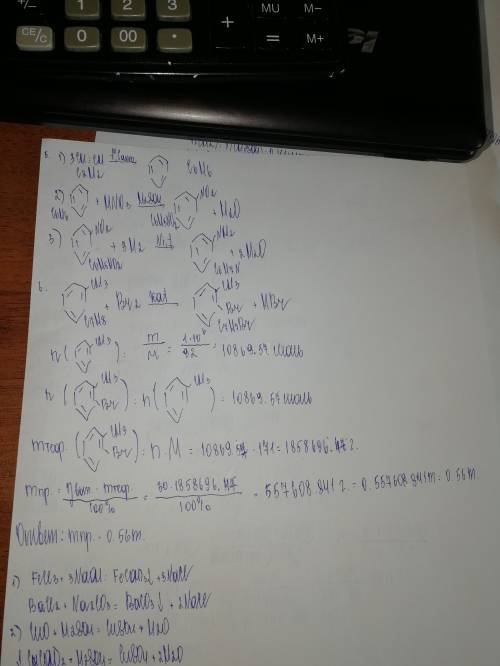 MU M-
+/- 1 2 3
+ = M+
CE/C 0 00 •
5. 1) 3CH≡CH C2H2 C6H6
2) C6H6 + HNO3 H2SO4 C6H5NO2 NO2 + H2O
3) NO2 C6H5NO2 + 3H2 Ni,t NH2 C6H7N + 2H2O
6. CH3 C7H8 + Br2 kat CH3 Br C7H7Br + HBr
n( CH3 ) = m/M = 1·10⁶/92 = 10869.57 моль
n( CH3 Br ) = n( CH3 ) = 10869.57 моль
mтеор. ( CH3 Br ) = n·M = 10869.57 · 171 = 1858696.47 г.
mпр. = ηвых · mтеор. / 100% = 30·1858696.47 / 100% = 557608.941 г. = 0.557608.941 т = 0.56 т.
Ответ: mпр. = 0.56 т.
1) FeCl3 + 3NaOH = Fe(OH)3↓ + 3NaCl
BaCl2 + Na2CO3 = BaCO3↓ + 2NaCl
2) CuO + H2SO4 = CuSO4 + H2O
Cu(OH)2 + H2SO4 = CuSO4 + 2H2O